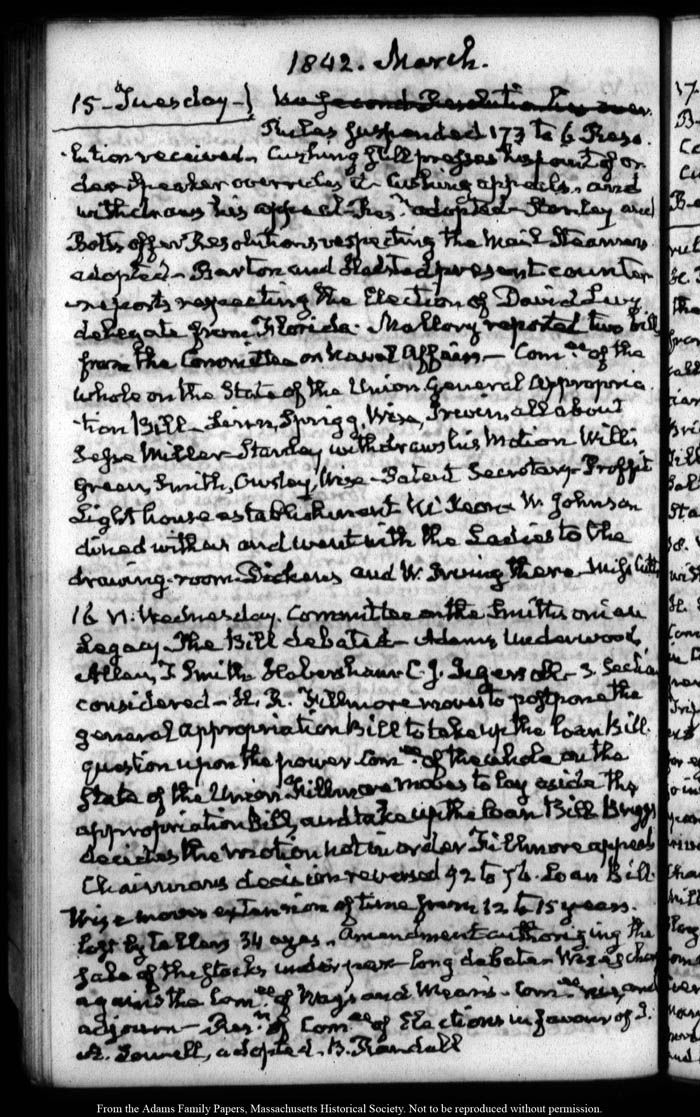 1842. March.
15 - Tuesday -} Resolution lies over.
Rules suspended 173 to 6 Reso-
lution received - Cushing still presses his point of or
der Speaker overrules it - Cushing appeals, and
withdraws his appeal - Resn. adopted - Stanley and
Botts offer Resolutions respecting the Mail Steamers
adopted - Barton and Halsted present counter
reports respecting the Election of David Levy
delegate from Florida. Mallory reported two bills
from the Committee on Naval Affairs - Comee. of the
whole on the State of the Union. General Appropria
tion Bill - Linn, Sprigg, Wise, Irwin, all about
Jesse Miller - Stanley withdraws his Motion Willis
Green, Smith, Owsley, Wise - Patent Secretary - Proffit
Light house establishment W. Johnson
dined with us and went with the Ladies to the
drawing-room. Dickens and W. Irving there. Miss Cutts
16 Wednesday. Committee on the Smithsonian
Legacy. The Bill debated - Adams, Underwood,
Allen, T. Smith, Habersham C. J. Ingersoll - 3. Section
considered - H. R. Fillmore moves to postpone the
general appropriation Bill to take up the loan Bill.
question upon the power. Comee. of the whole on the
State of the Union Fillmore moves to lay aside the
appropriation Bill, and take up the loan Bill Briggs
decides the motion not in order Fillmore appeals
Chairman's decision reversed 92 to 76. Loan Bill.
Wise moves extension of time from 12 to 15 years.
lost by tellers 34 ayes. Amendment authorizing the
sale of the stocks under par - long debate - Wise's char
against the Comee. of Ways and Means - Comee. rise, and
adjourn - Resn. of Comee. of Elections in favour of J.
A. Lowell, adopted. B. Randall
From the Adams Family Papers, Massachusetts Historical Society. Not to be reproduced without permission.